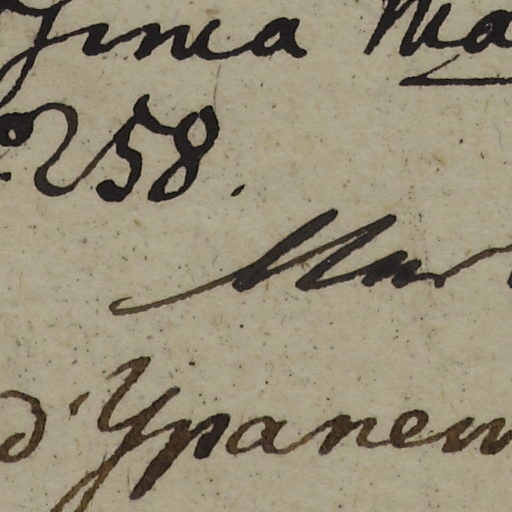 ginia Ma
258.
Mar
d'Ypanem